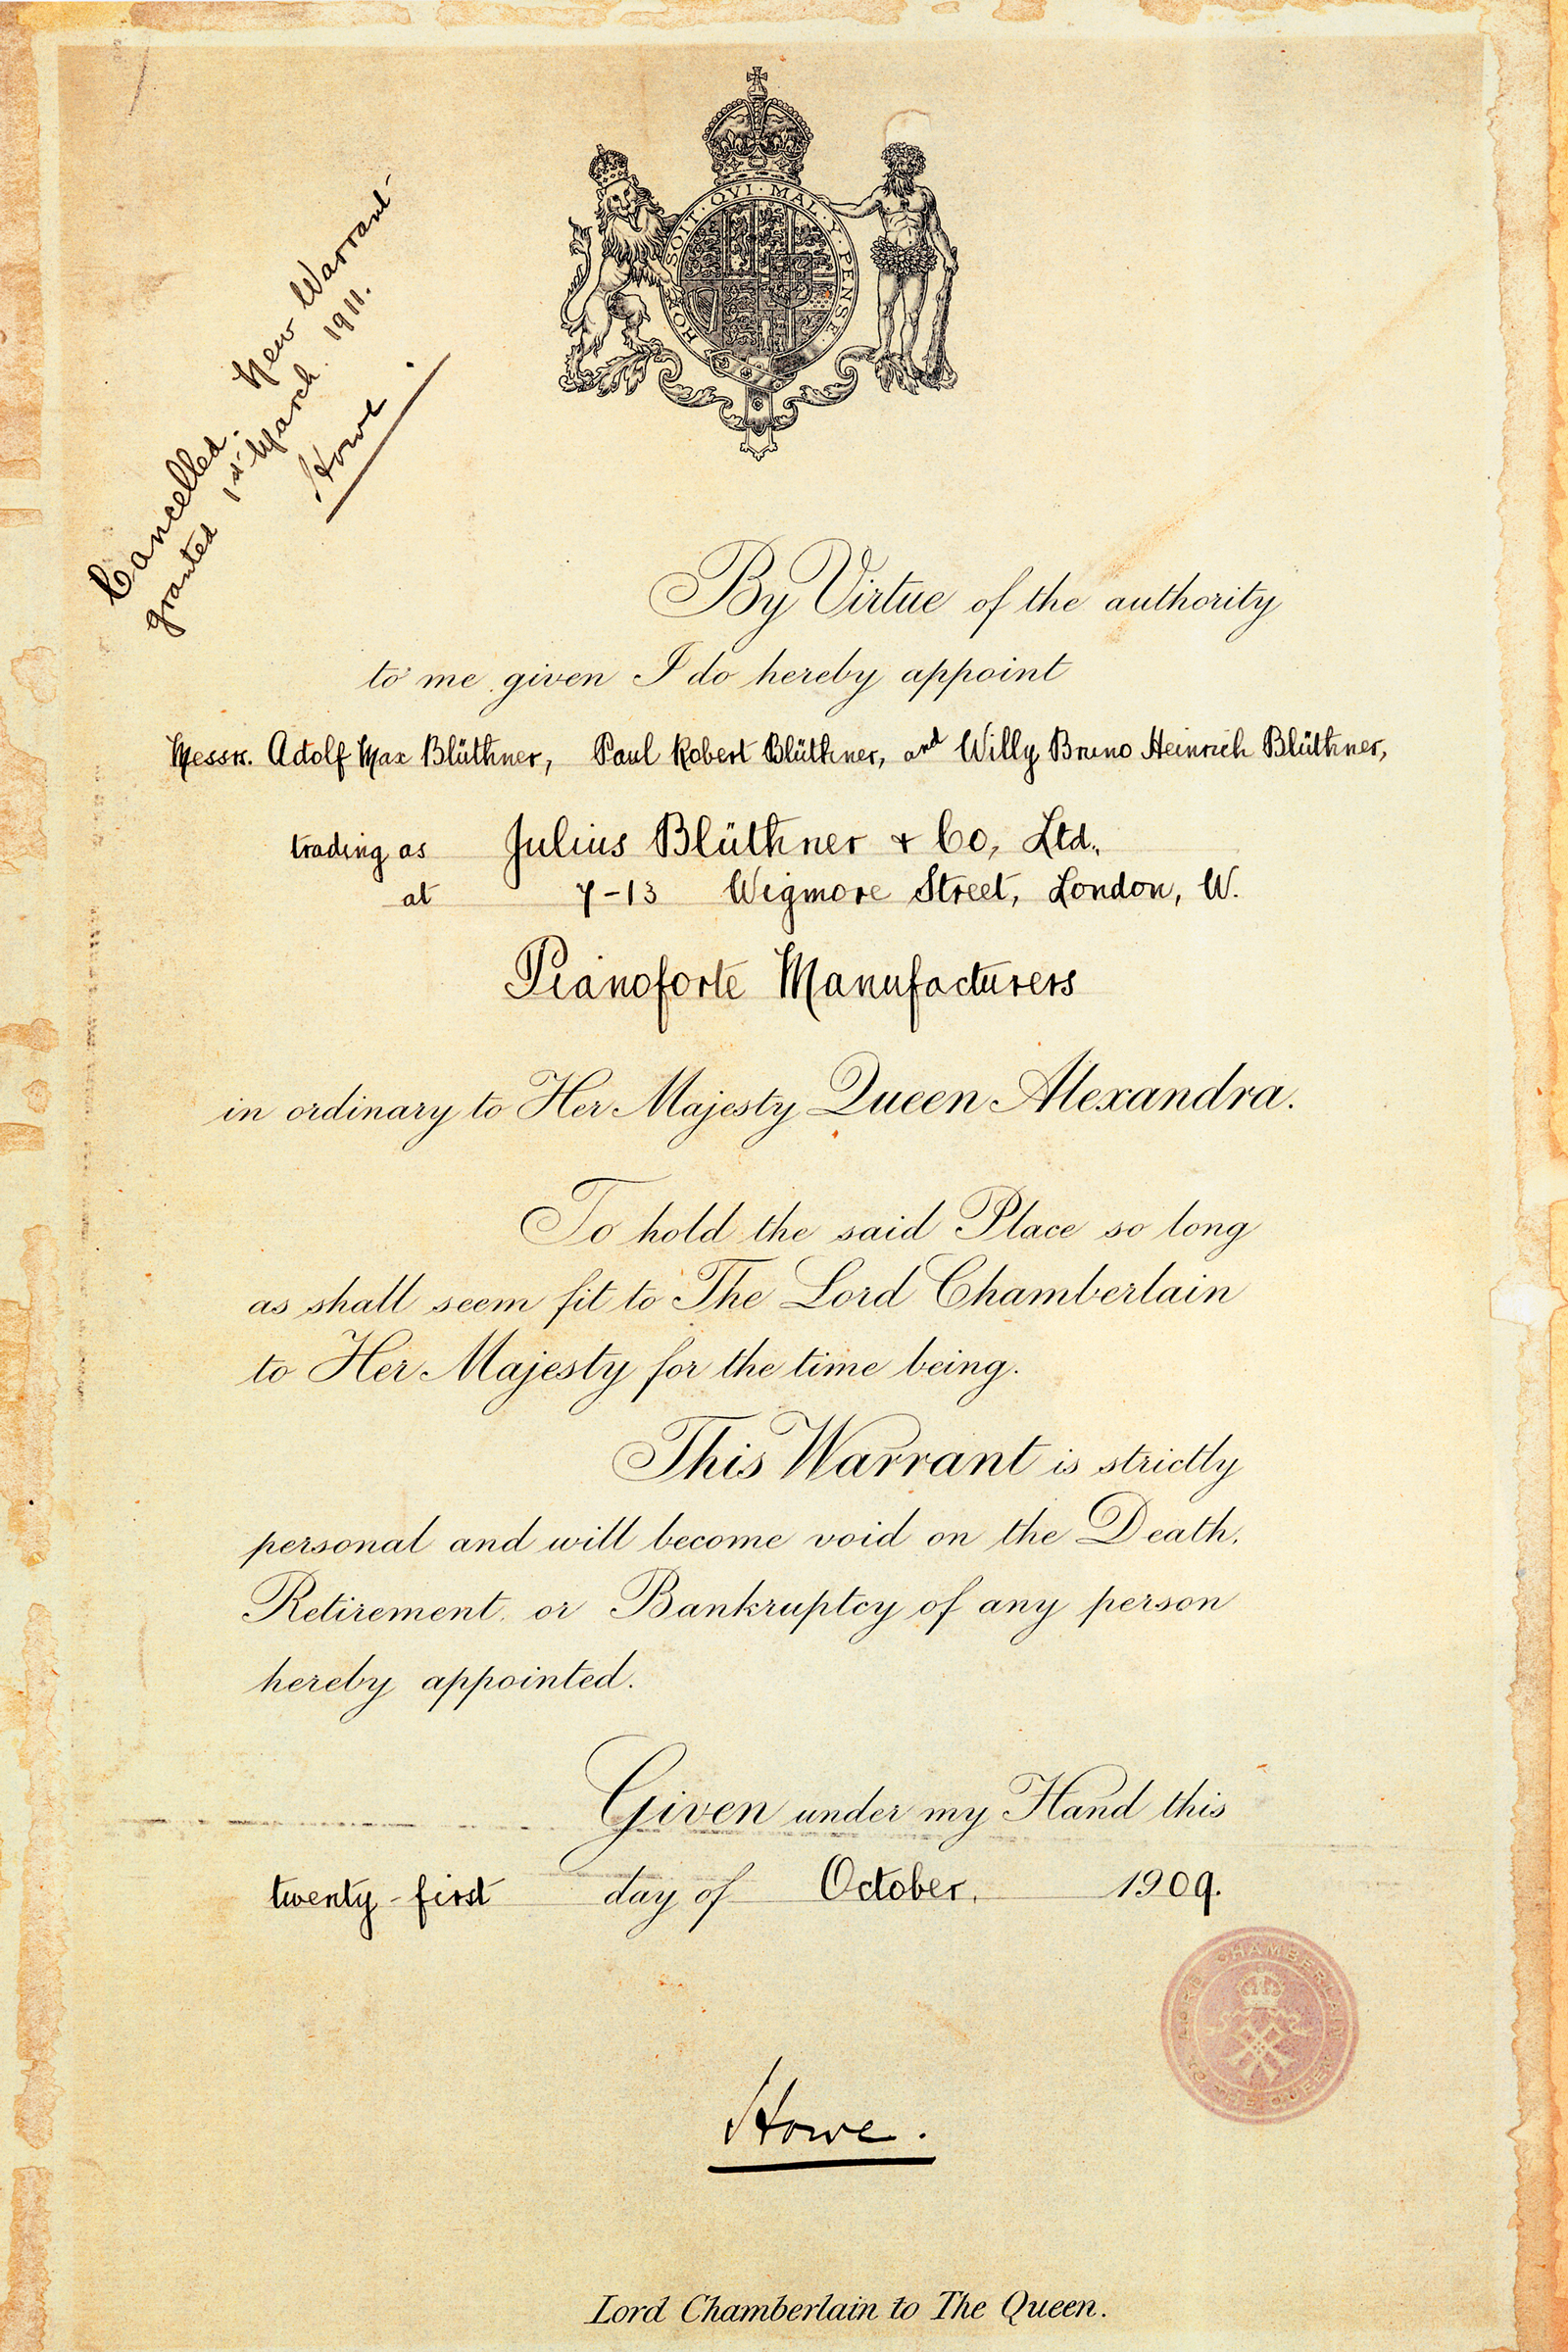 HONI · SOIT · QVI · MAL · Y · PENSE
Cancelled. New Warrant
granted 1st March 1911.
Howe.
By Virtue of the authority
to me given I do hereby appoint
Messrs. Adolf Max Blüthner, Paul Robert Blüthner, and Willy Bruno Heinrich Blüthner,
trading as Julius Blüthner & Co, Ltd.,
at 7-13 Wigmore Street, London, W.
Pianoforte Manufacturers
in ordinary to Her Majesty Queen Alexandra.
To hold the said Place so long
as shall seem fit to The Lord Chamberlain
to Her Majesty for the time being.
This Warrant is strictly
personal and will become void on the Death,
Retirement, or Bankruptcy of any person
hereby appointed.
Given under my Hand this
twenty-first day of October, 1909.
LORD CHAMBERLAIN TO THE QUEEN
Howe.
Lord Chamberlain to The Queen.